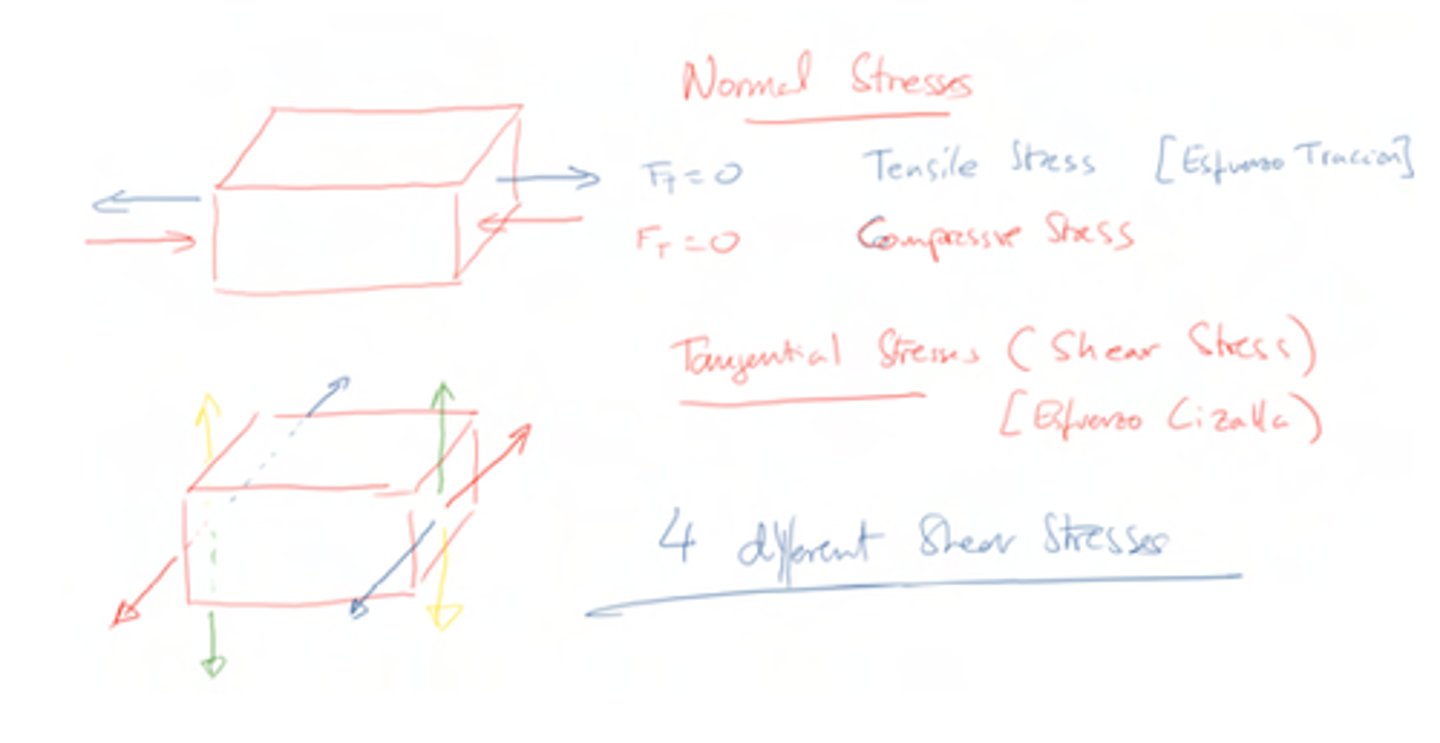 Normal Stresses
F_T = 0 Tensile Stress [Esfuerzo Tracion]
F_T = 0 Compressive Stress
Tangential Stresses (Shear Stress)
[Esfuerzo Cizalla)
4 different Shear Stresses